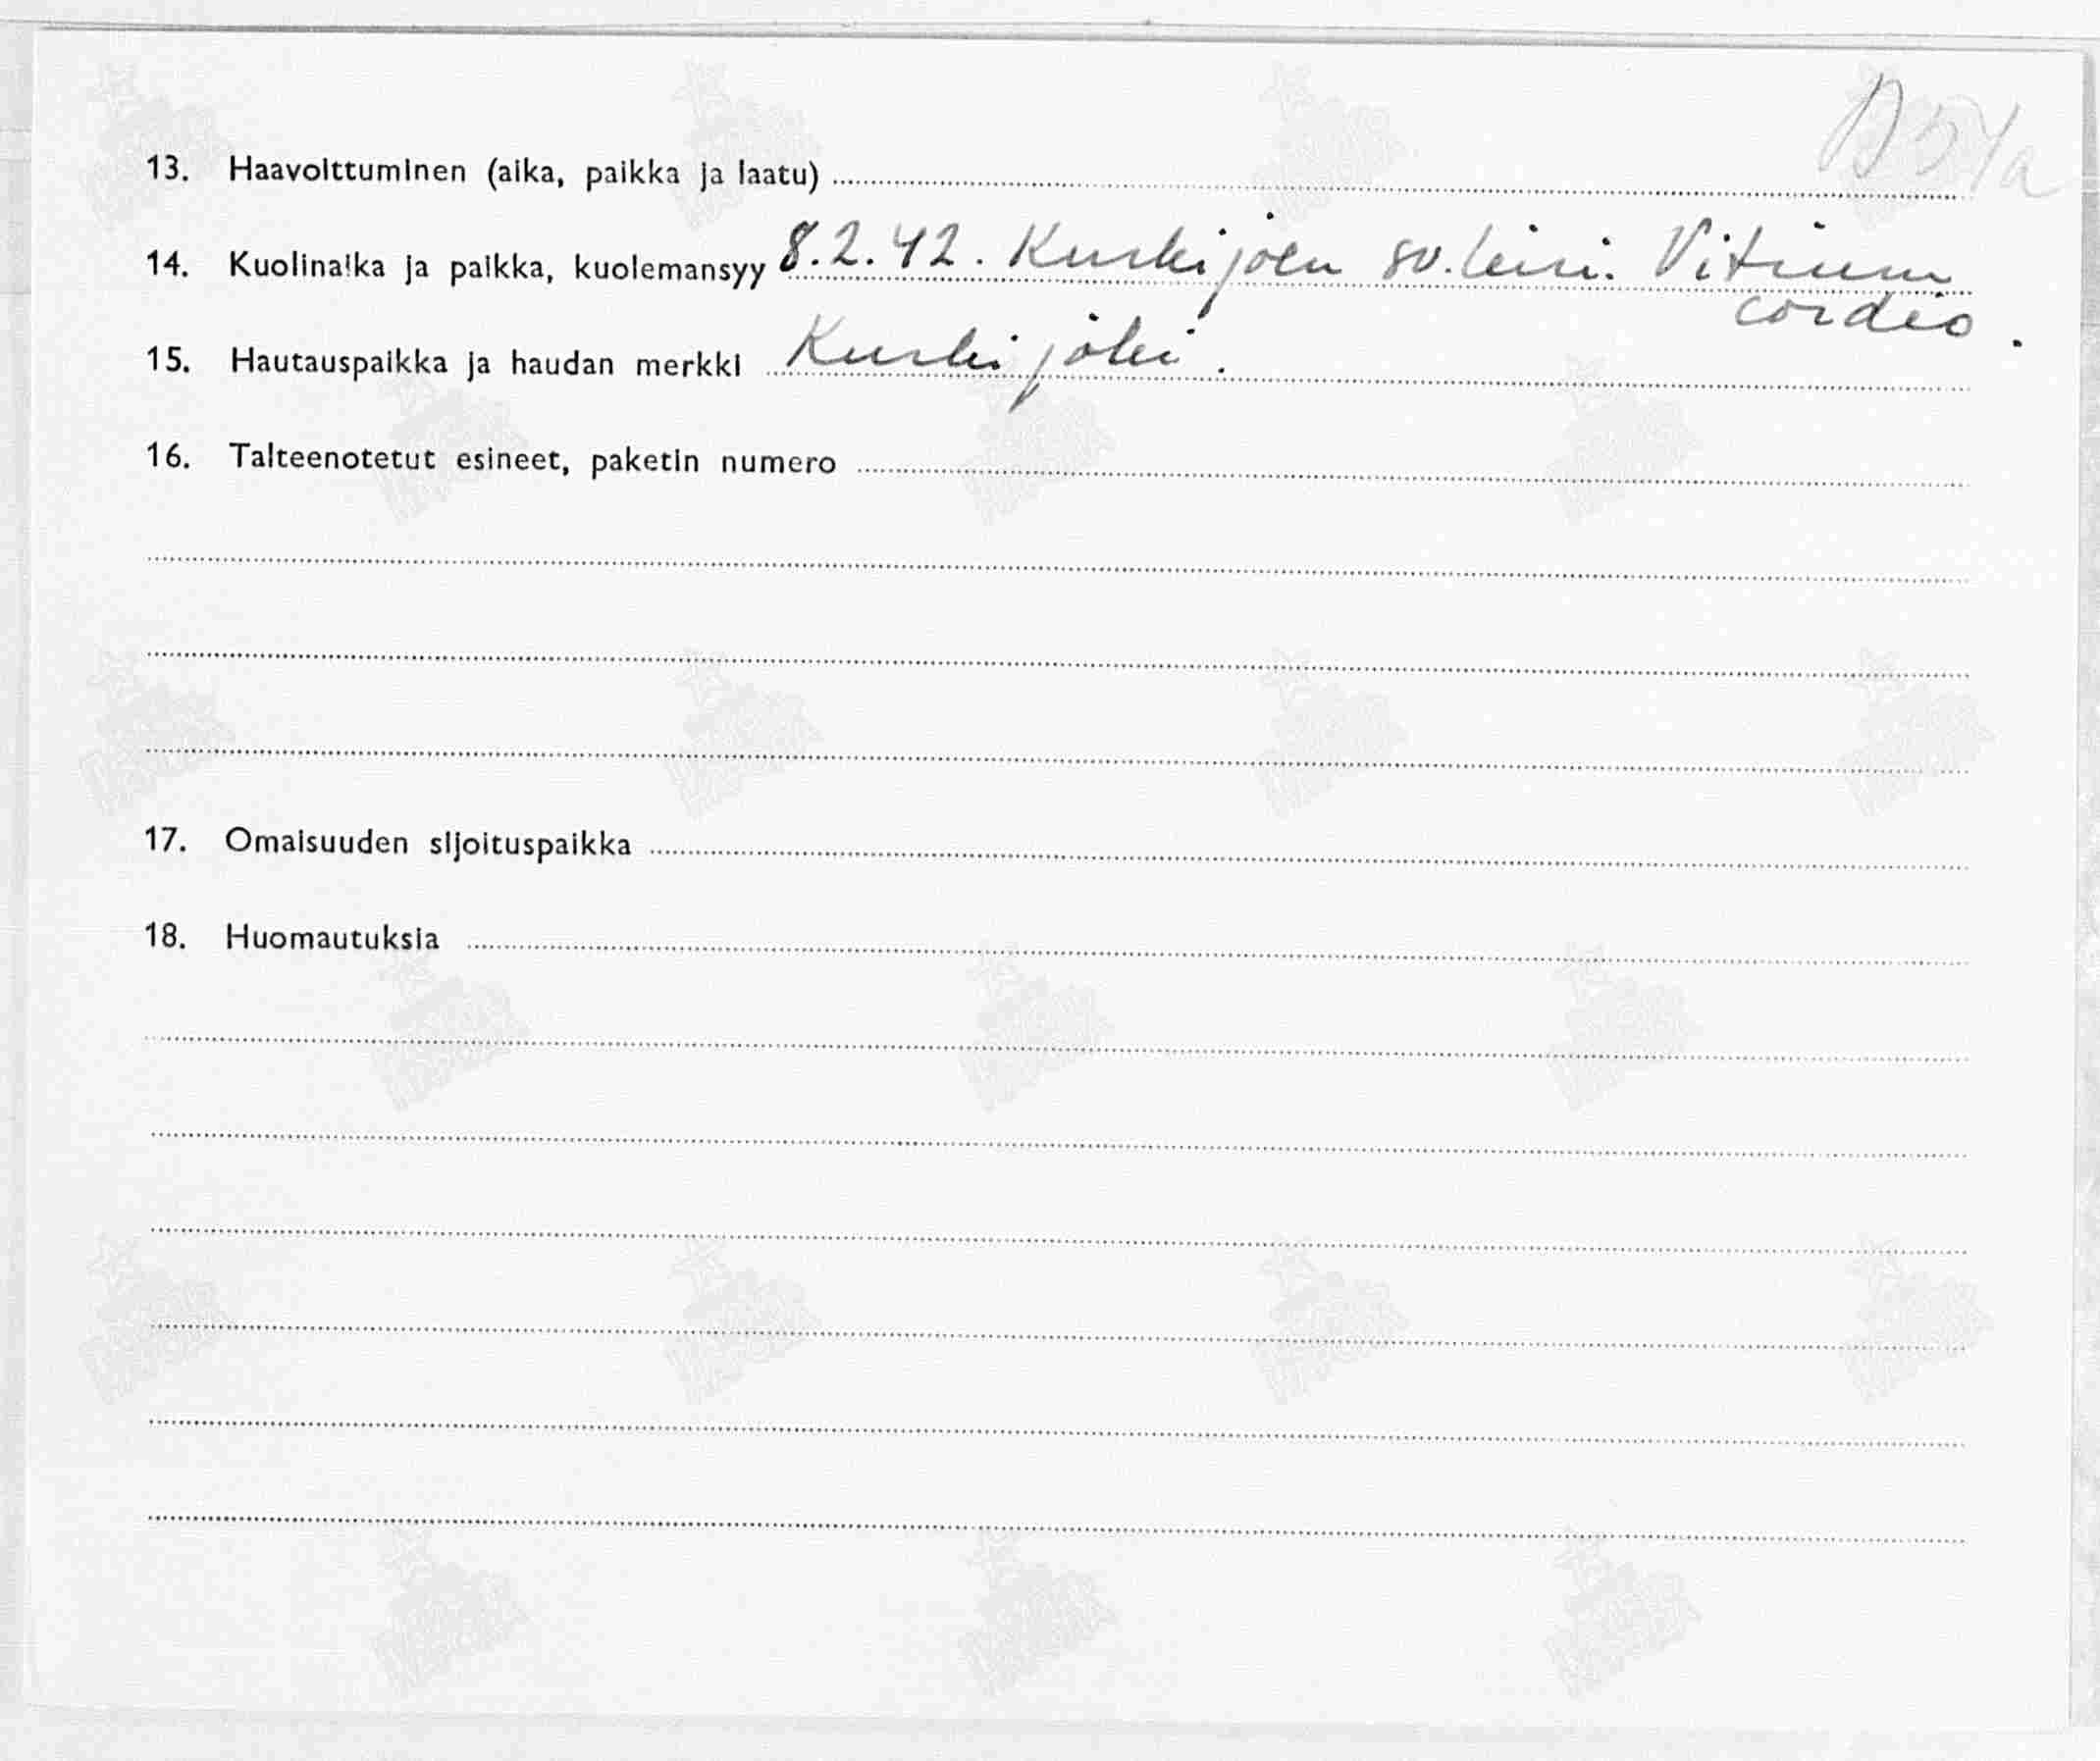 D 51a
13. Haavoittuminen (aika, paikka ja laatu)
14. Kuolinaika ja paikka, kuolemansyy 8.2.42. Kurkijoen sv.leiri. Vitium
cordis.
15. Hautauspaikka ja haudan merkki Kurkijoki.
16. Talteenotetut esineet, paketin numero
17. Omaisuuden sijoituspaikka
18. Huomautuksia